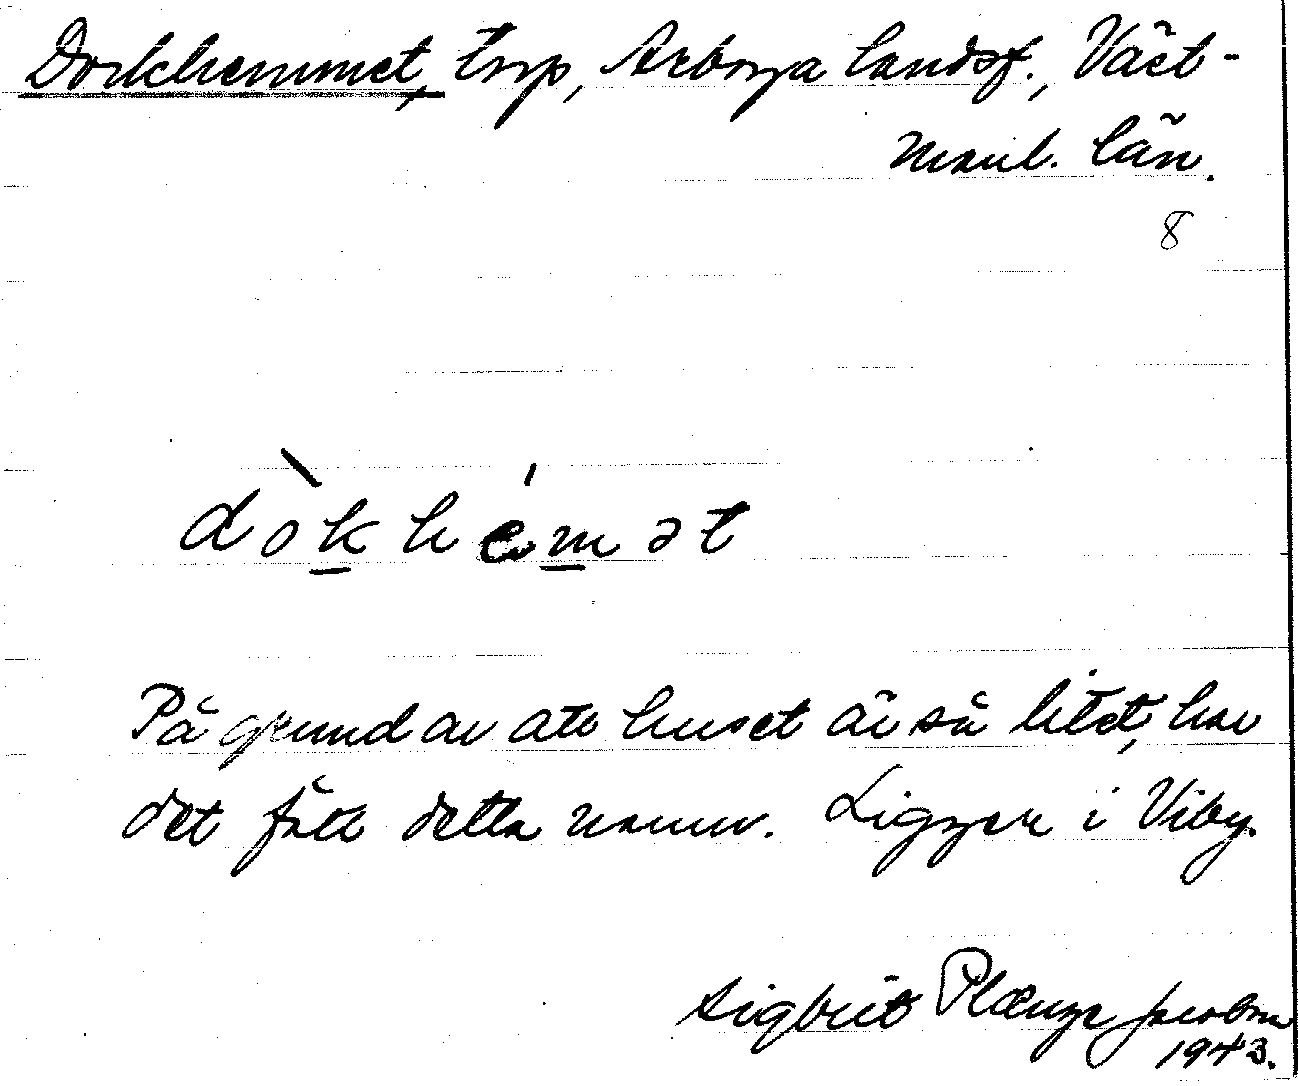 Dockhemmet, torp, Arboga landsf., Väst-
manl. län.
8
dòkhémət
På grund av att huset är så litet, har
det fått detta namn. Ligger i Viby.
Sigbrit Plænge Jacobson
1943.